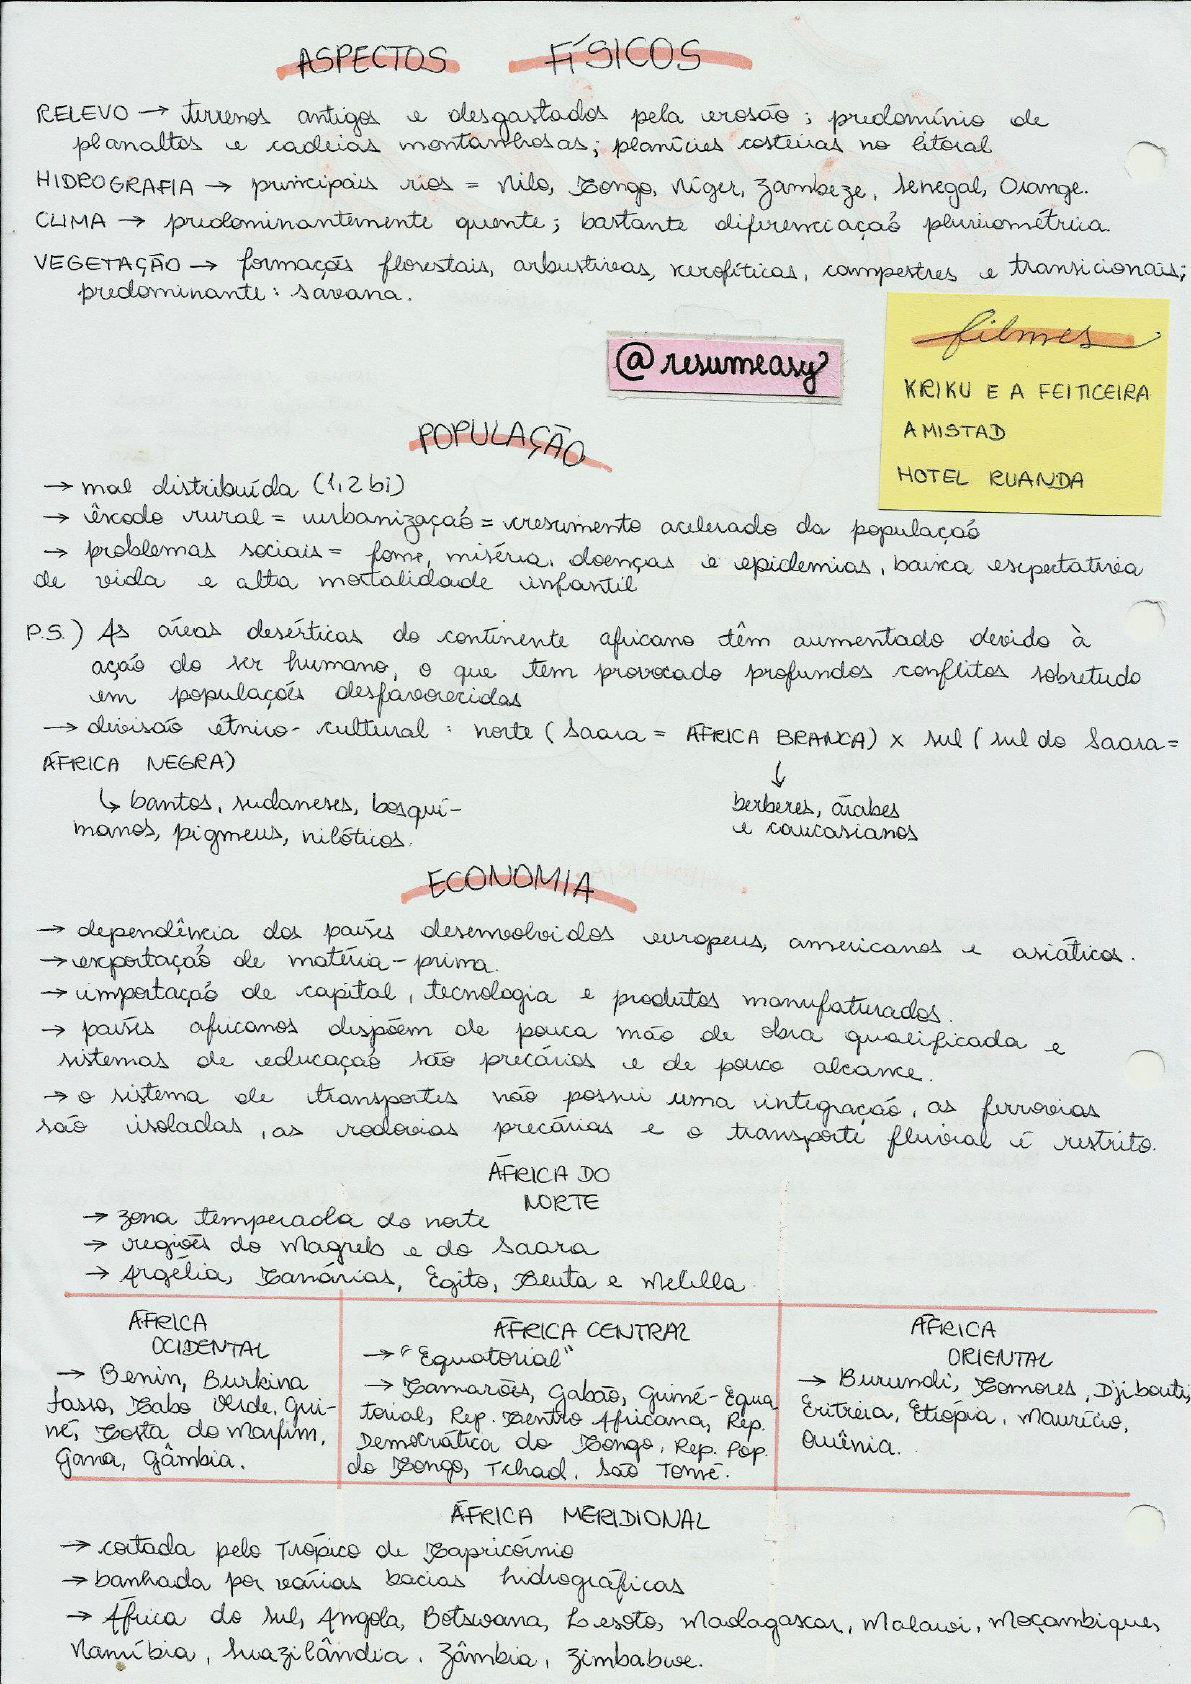 ASPECTOS FÍSICOS
RELEVO → terrenos antigos e desgastados pela erosão; predomínio de
planaltos e cadeias montanhosas; planícies costeiras no litoral
HIDROGRAFIA → principais rios = Nilo, Congo, Níger, Zambeze, Senegal, Orange.
CLIMA → predominantemente quente; bastante diferenciação pluviométrica.
VEGETAÇÃO → formações florestais, arbustivas, xerofíticas, campestres e transicionais;
predominante: savana.
filmes
KRIKU E A FEITICEIRA
AMISTAD
HOTEL RUANDA
@resumeasy
POPULAÇÃO
→ mal distribuída (1,2 bi)
→ êxodo rural = urbanização = crescimento acelerado da população
→ problemas sociais = fome, miséria, doenças e epidemias, baixa expectativa
de vida e alta mortalidade infantil
P.S.) As áreas desérticas do continente africano têm aumentado devido à
ação do ser humano, o que tem provocado profundos conflitos sobretudo
em populações desfavorecidas
→ divisão étnico-cultural: norte (Saara = ÁFRICA BRANCA) x sul (sul do Saara =
ÁFRICA NEGRA)
↳ bantos, sudaneses, bosquí-
manos, pigmeus, nilóticos.
↓
berberes, árabes
e caucasianos
ECONOMIA
→ dependência dos países desenvolvidos europeus, americanos e asiáticos.
→ exportação de matéria-prima.
→ importação de capital, tecnologia e produtos manufaturados.
→ países africanos dispõem de pouca mão de obra qualificada e
sistemas de educação são precários e de pouco alcance.
→ o sistema de transportes não possui uma integração, as ferrovias
são isoladas, as rodovias precárias e o transporte fluvial é restrito.
ÁFRICA DO
NORTE
→ zona temperada do norte
→ regiões do Magreb e do Saara
→ Argélia, Canárias, Egito, Ceuta e Melilla
ÁFRICA
OCIDENTAL
→ Benin, Burkina
Fasso, Cabo Verde, Gui-
né, Costa do Marfim,
Gana, Gâmbia.
ÁFRICA CENTRAL
→ "Equatorial"
→ Camarões, Gabão, Guiné-Equa
torial, Rep. Centro Africana, Rep.
Democrática do Congo, Rep. Pop.
do Congo, Tchad, São Tomé.
ÁFRICA
ORIENTAL
→ Burundi, Comores, Djibouti,
Eritréia, Etiópia, Maurício,
Quênia.
ÁFRICA MERIDIONAL
→ cortada pelo Trópico de Capricórnio
→ banhada por várias bacias hidrográficas
→ África do Sul, Angola, Botswana, Lesoto, Madagascar, Malawi, Moçambique,
Namíbia, Suazilândia, Zâmbia, Zimbabwe.